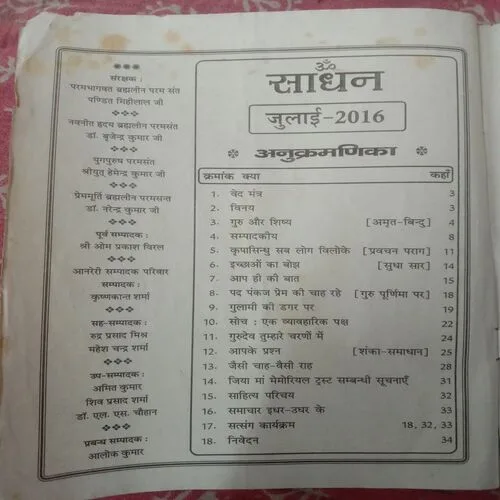 संरक्षक :
परमभागवत ब्रह्मलीन परम संत
पण्डित मिहीलाल जी
नवनीत हृदय ब्रह्मलीन परमसंत
डॉ. बृजेन्द्र कुमार जी
युगपुरुष परमसंत
श्रीयुत् हेमेन्द्र कुमार जी
प्रेममूर्ति ब्रह्मलीन परमसन्त
डॉ. नरेन्द्र कुमार जी
पूर्व सम्पादक :
श्री ओम प्रकाश विरल
आनरेरी सम्पादक परिवार
सम्पादक :
कृष्णकान्त शर्मा
सह-सम्पादक :
रुद्र प्रसाद मिश्र
महेश चन्द्र शर्मा
उप-सम्पादक :
अमित कुमार
शिव प्रसाद शर्मा
डॉ. एल. एस. चौहान
प्रबन्ध सम्पादक :
आलोक कुमार
ॐ
साधन
जुलाई-2016
अनुक्रमणिका
क्रमांक क्या कहाँ
1. वेद मंत्र 3
2. विनय 3
3. गुरु और शिष्य [अमृत-बिन्दु] 4
4. सम्पादकीय 8
5. कृपासिन्धु सब लोग विलोके [प्रवचन पराग] 11
6. इच्छाओं का बोझ [सुधा सार] 14
7. आप ही की बात 15
8. पद पंकज प्रेम की चाह रहे [गुरु पूर्णिमा पर] 18
9. गुलामी की डगर पर 19
10. सोच : एक व्यावहारिक पक्ष 22
11. गुरुदेव तुम्हारे चरणों में 24
12. आपके प्रश्न [शंका-समाधान] 25
13. जैसी चाह-वैसी राह 28
14. जिया मां मेमोरियल ट्रस्ट सम्बन्धी सूचनाएँ 31
15. साहित्य परिचय 32
16. समाचार इधर-उधर के 33
17. सत्संग कार्यक्रम 18, 32, 33
18. निवेदन 34